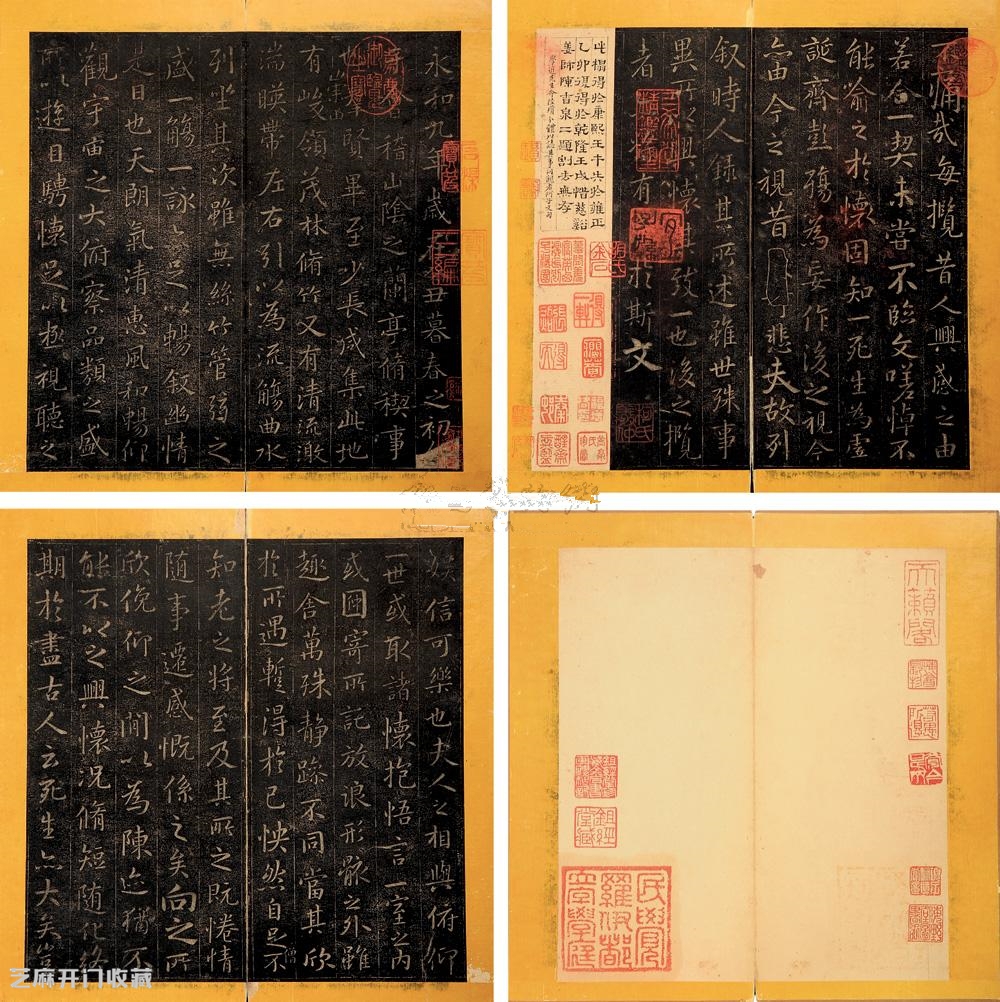 永和九年歲在丑暮春之初
稽山陰之蘭亭脩稧事
賢畢至少長咸集此地
有領茂林脩竹又有清流激
湍暎帶左右引以為流觴曲水
列坐其次雖無絲竹管弦之
盛一觴一詠亦足以暢敘幽情
是日也天朗氣清惠風和暢仰
觀宇宙之大俯察品類之盛
所以遊目騁懷足以極視聽之
娛信可樂也夫人之相與俯仰
一世或取諸懷抱悟言一室之內
或因寄所託放浪形骸之外雖
趣舍萬殊靜躁不同當其欣
於所遇蹔得於己怏然自足不
知老之將至及其所之既惓情
隨事遷感慨係之矣向之所
欣俛仰之閒以為陳迹猶不
能不以之興懷況脩短隨化終
期於盡古人云死生亦大矣豈
不痛哉每攬昔人興感之由
若合一契未嘗不臨文嗟悼不
能喻之於懷固知一死生為虛
誕齊彭殤為妄作後之視今
亦由今之視昔悲夫故列
敘時人錄其所述雖世殊事
異所以興懷其致一也後之攬
者亦將有於斯文
此榻得於康熙壬午失於雍正
乙卯復得於乾隆壬戌惜慈谿
姜師陳吉泉二題割去無存
天籟閣
鉏經堂藏
芝麻开门收藏